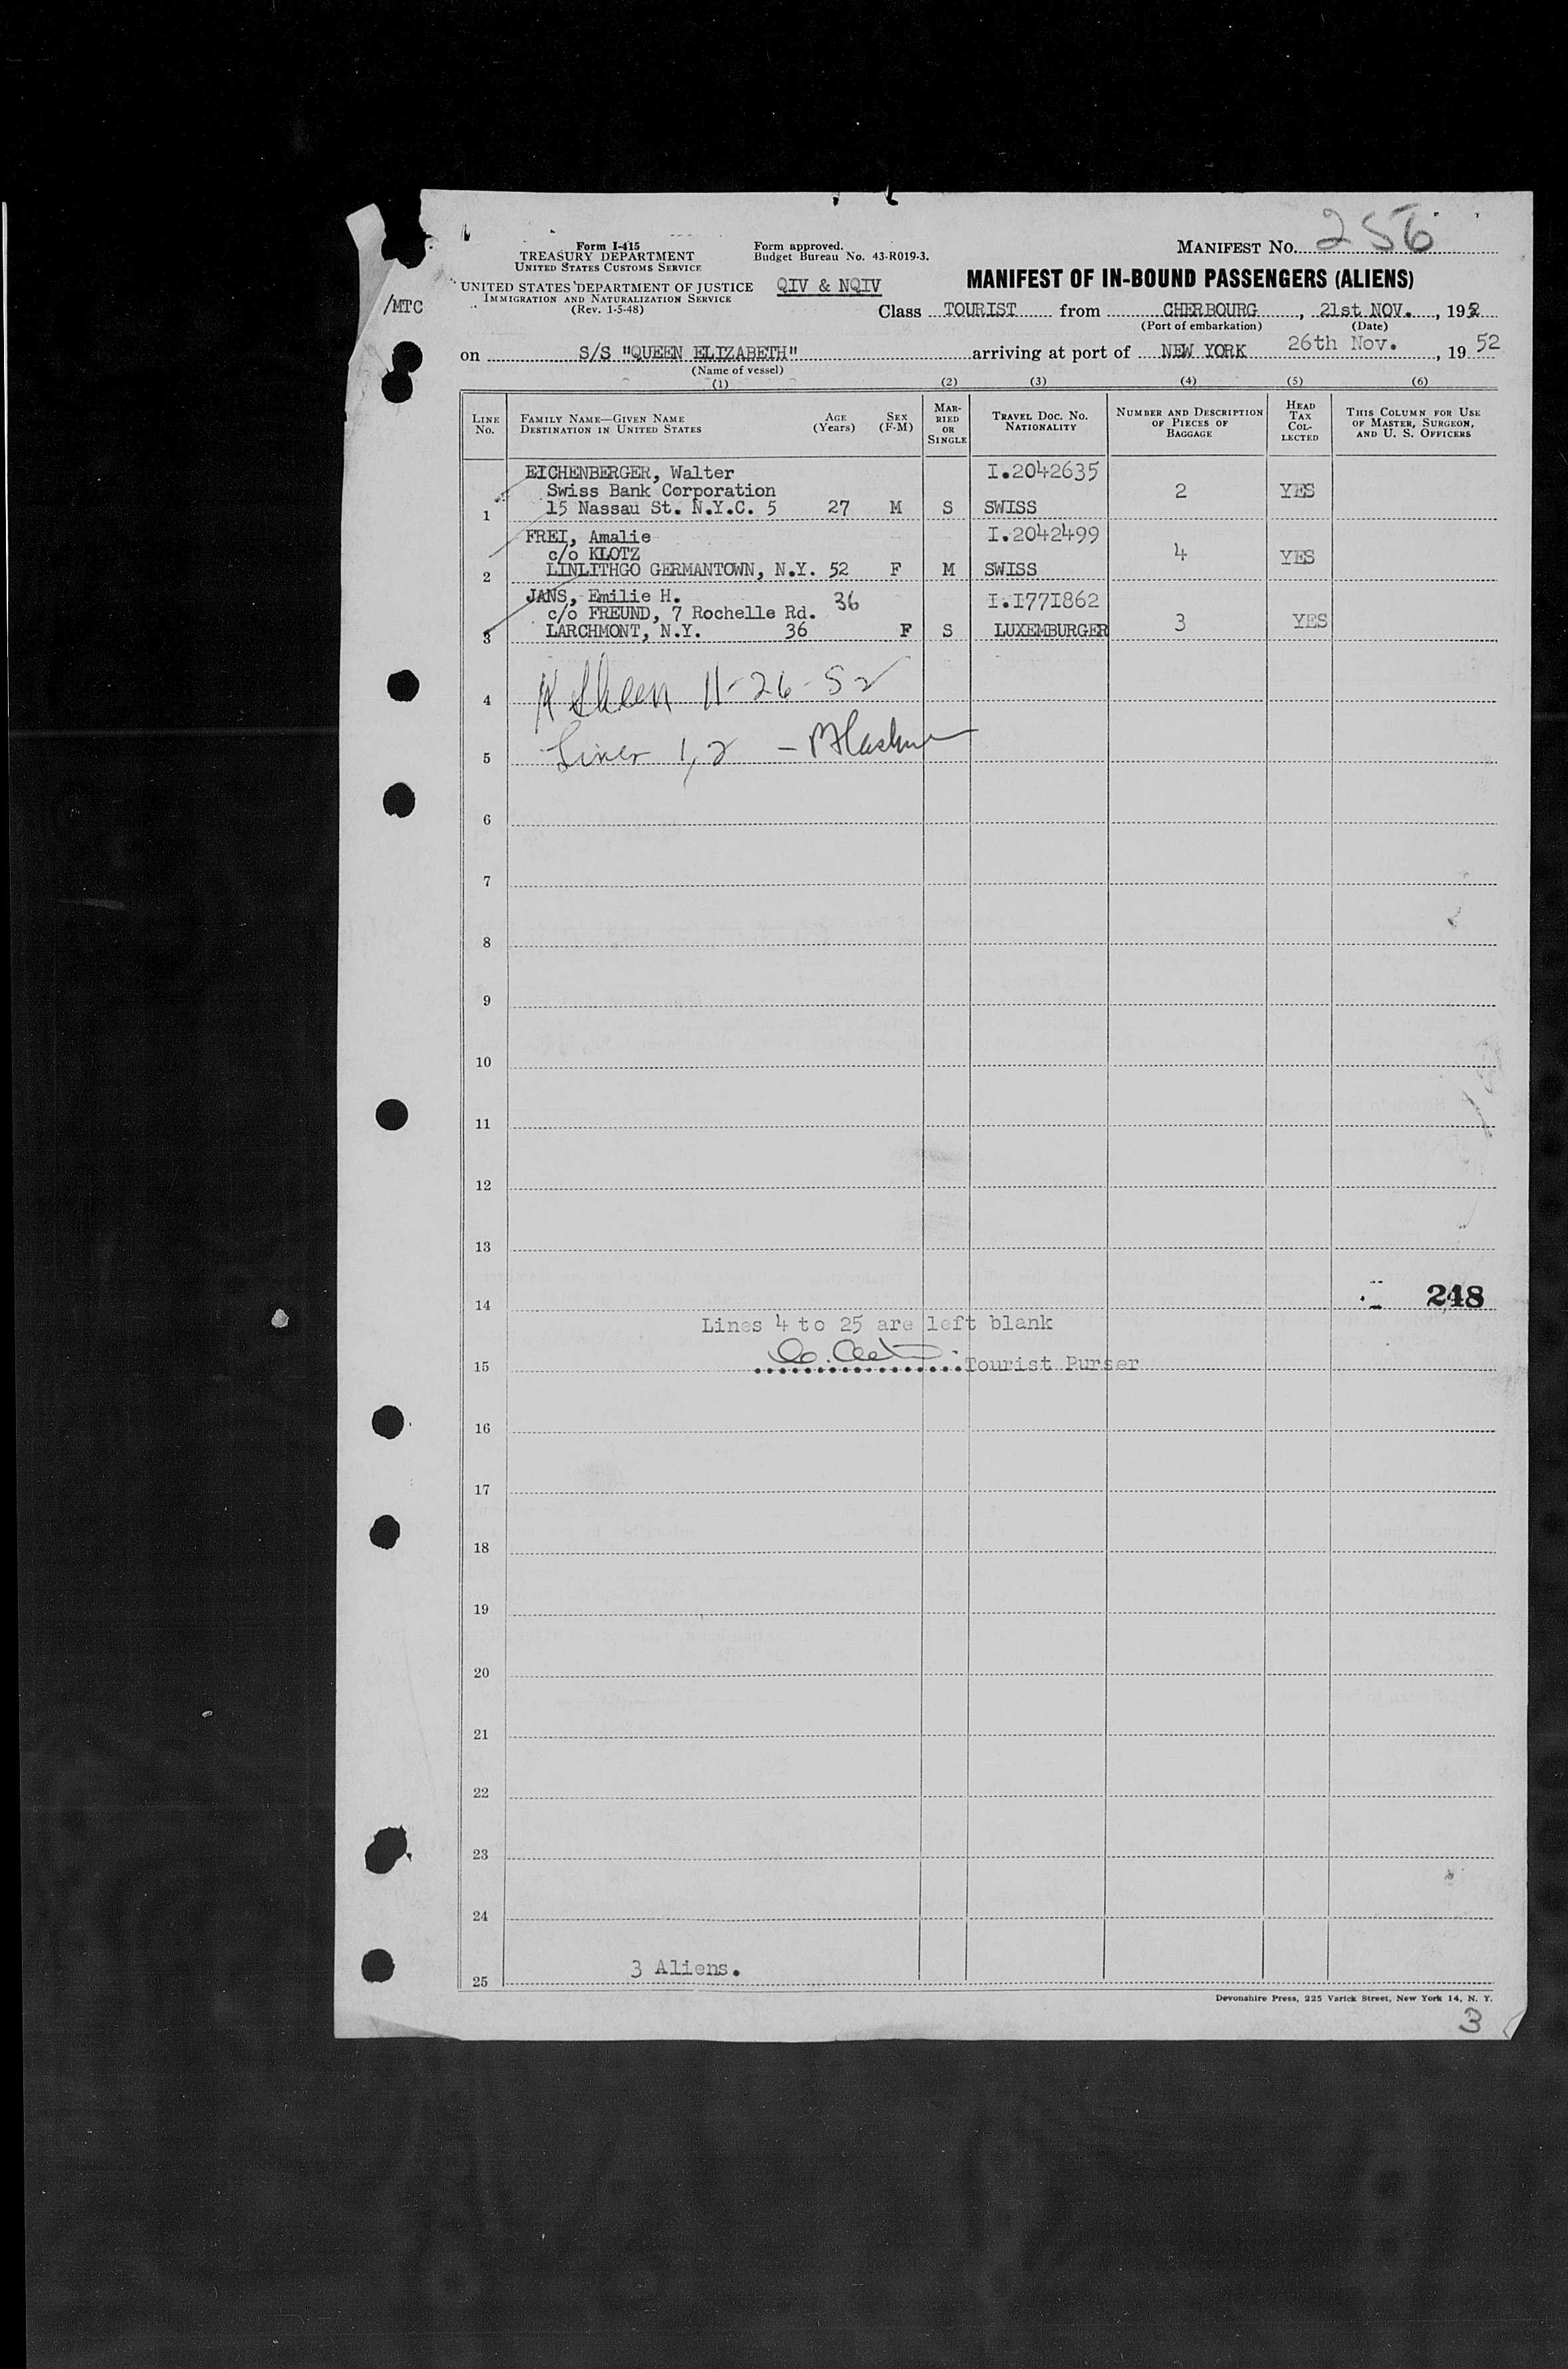 Form I-415
TREASURY DEPARTMENT
UNITED STATES CUSTOMS SERVICE
UNITED STATES DEPARTMENT OF JUSTICE
IMMIGRATION AND NATURALIZATION SERVICE
(Rev. 1-5-48)
Form approved.
Budget Bureau No. 43-R019-3.
QIV & NQIV
/MTC
MANIFEST NO. 256
MANIFEST OF IN-BOUND PASSENGERS (ALIENS)
Class TOURIST from CHERBOURG, 21st NOV., 1952
(Port of embarkation) (Date)
on S/S "QUEEN ELIZABETH" arriving at port of NEW YORK 26th Nov., 1952
(Name of vessel)
(1) (2) (3) (4) (5) (6)
LINE NO. FAMILY NAME—GIVEN NAME DESTINATION IN UNITED STATES AGE (Years) SEX (F-M) MARRIED OR SINGLE TRAVEL DOC. NO. NATIONALITY NUMBER AND DESCRIPTION OF PIECES OF BAGGAGE HEAD TAX COLLECTED THIS COLUMN FOR USE OF MASTER, SURGEON, AND U. S. OFFICERS
EICHENBERGER, Walter I.2042635
Swiss Bank Corporation 2 YES
1 15 Nassau St. N.Y.C. 5 27 M S SWISS
FREI, Amalie I.2042499
c/o KLOTZ 4 YES
2 LINLITHGO GERMANTOWN, N.Y. 52 F M SWISS
JANS, Emilie H. 36 I.I771862
c/o FREUND, 7 Rochelle Rd. 3 YES
3 LARCHMONT, N.Y. 36 F S LUXEMBURGER
4 11-26-52
5 Lines 1, 2 -
6
7
8
9
10
11
12
13
14 248
Lines 4 to 25 are left blank
15 Tourist Purser
16
17
18
19
20
21
22
23
24
3 Aliens.
25
Devonshire Press, 225 Varick Street, New York 14, N. Y.
3